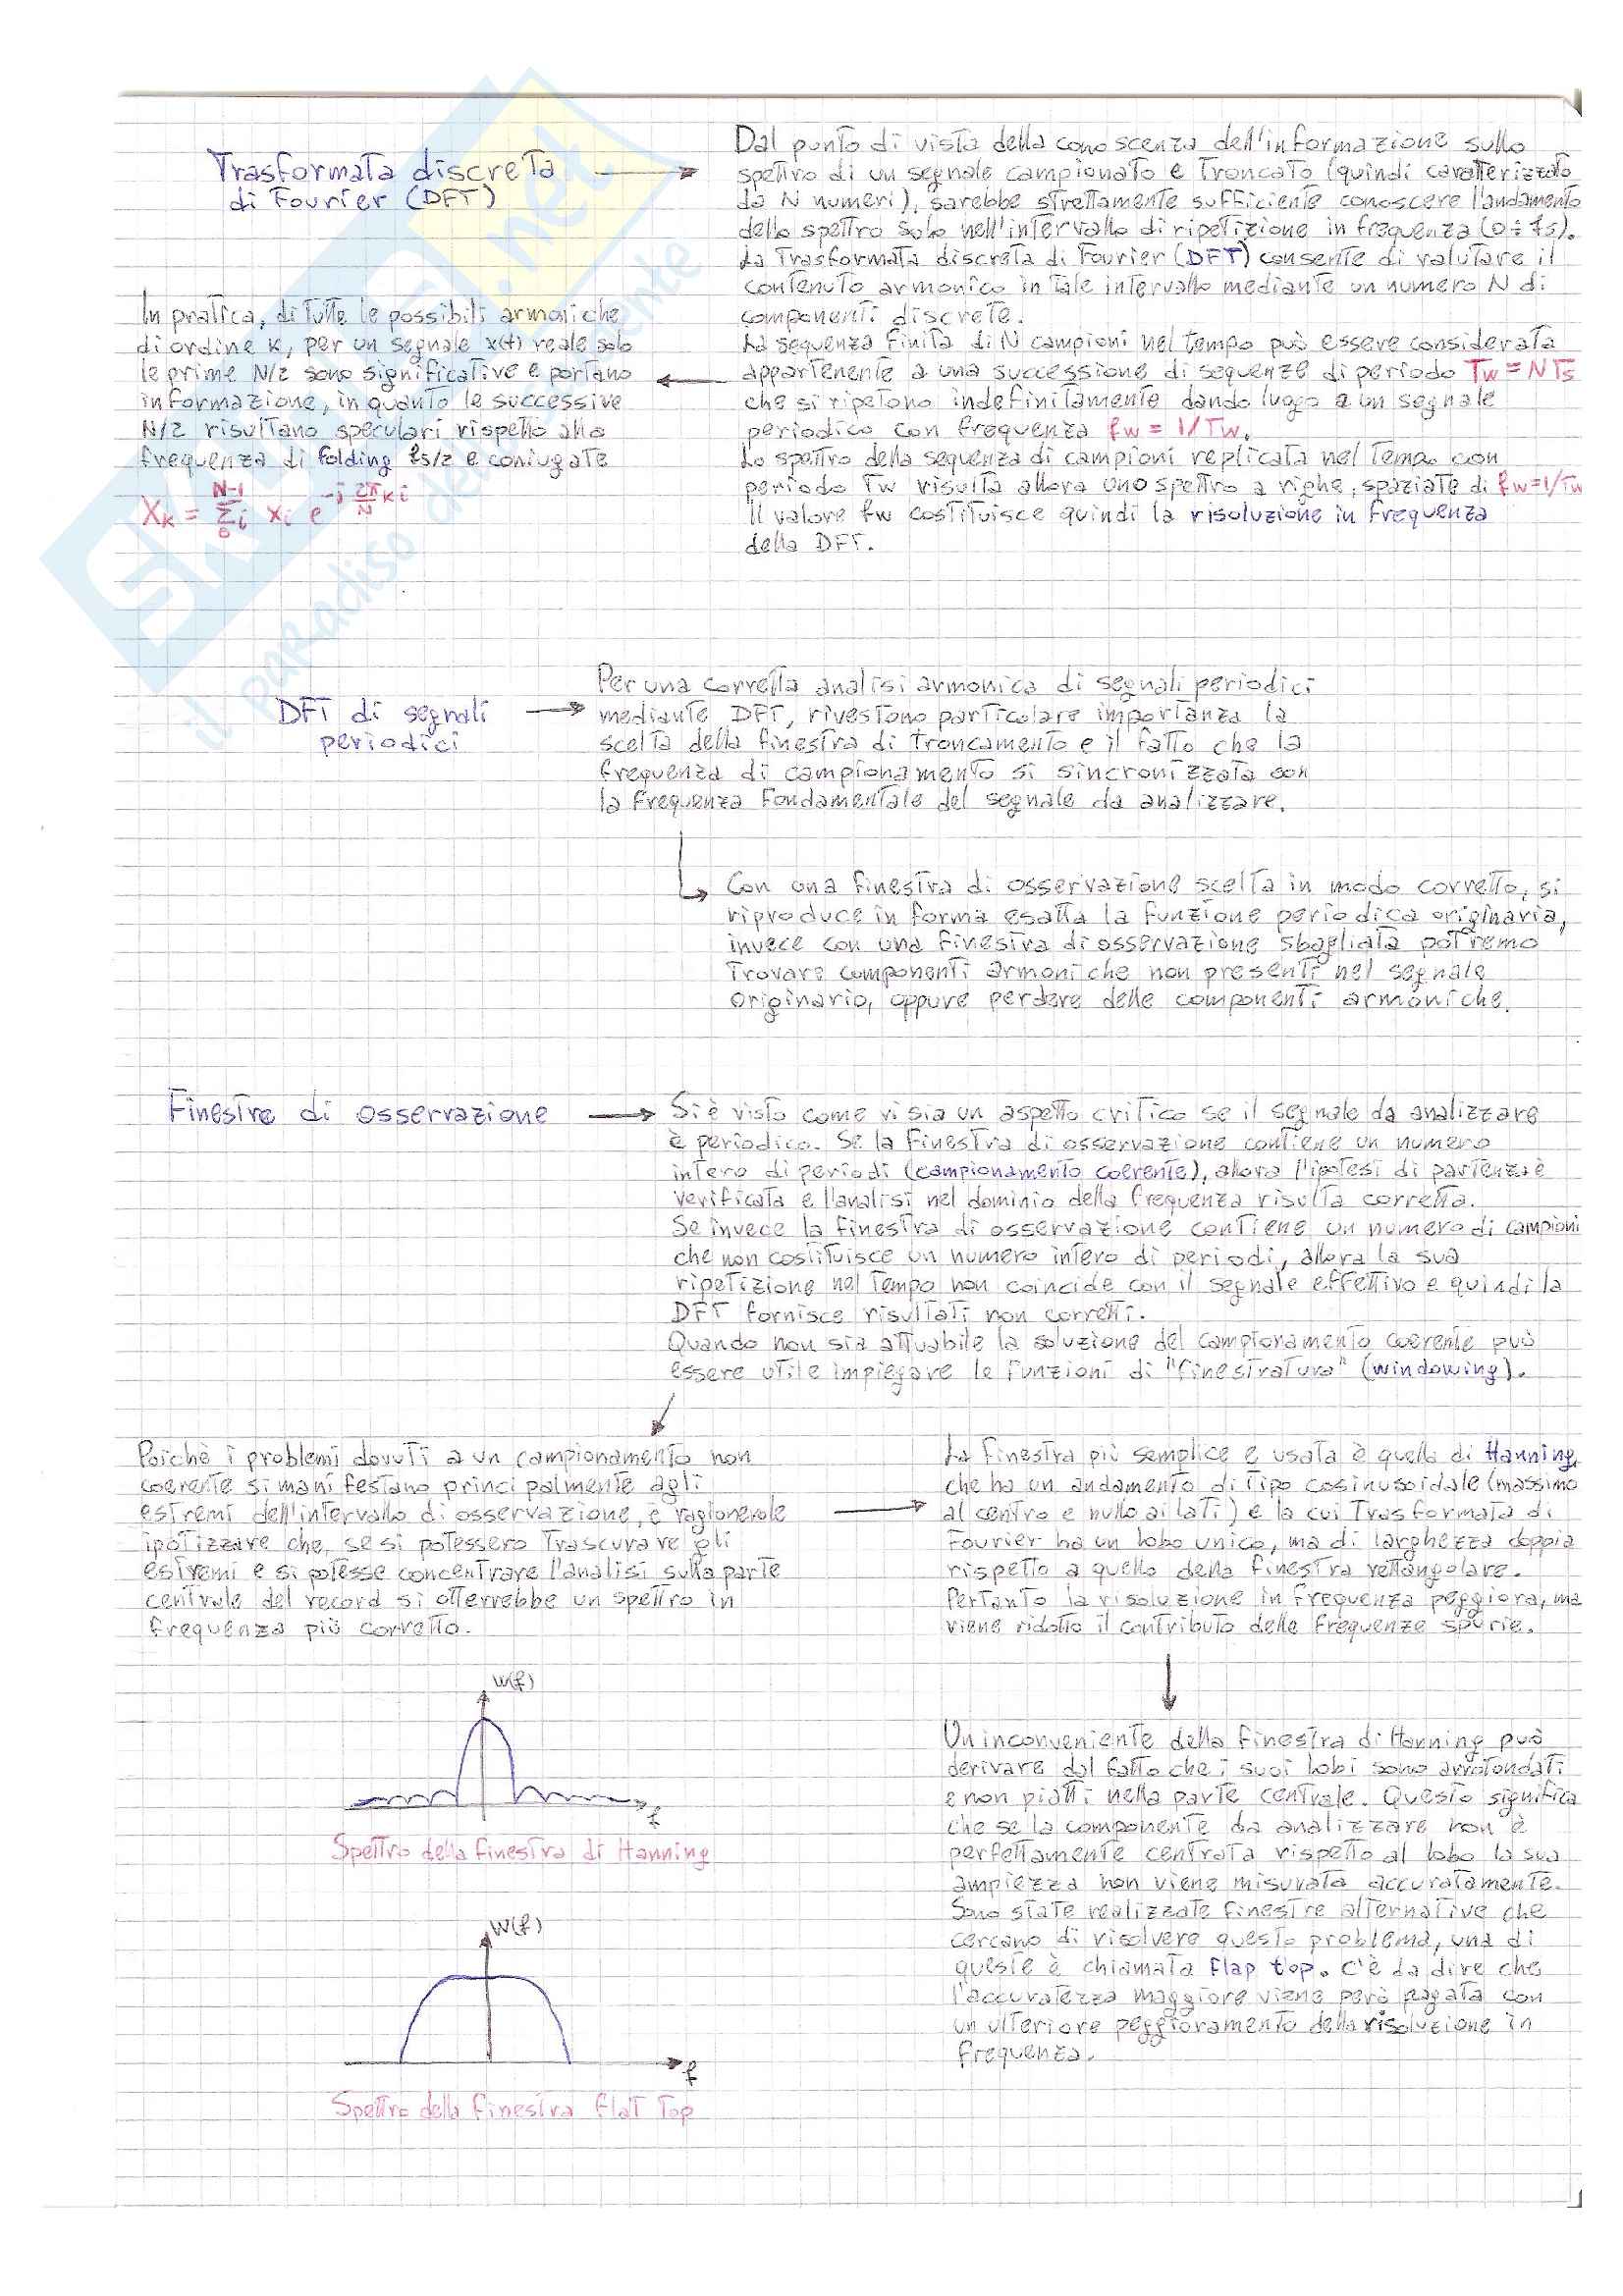 Trasformata discreta
di Fourier (DFT)
Dal punto di vista della conoscenza dell'informazione sullo
spettro di un segnale campionato e troncato (quindi caratterizzato
da N numeri), sarebbe strettamente sufficiente conoscere l'andamento
dello spettro solo nell'intervallo di ripetizione in frequenza (0÷fs).
La trasformata discreta di Fourier (DFT) consente di valutare il
contenuto armonico in tale intervallo mediante un numero N di
componenti discrete.
La sequenza finita di N campioni nel tempo può essere considerata
appartenente a una successione di sequenze di periodo Tw = NTs
che si ripetono indefinitamente dando luogo a un segnale
periodico con frequenza fw = 1/Tw.
Lo spettro della sequenza di campioni replicata nel tempo con
periodo Tw risulta allora uno spettro a righe, spaziate di fw=1/Tw
Il valore fw costituisce quindi la risoluzione in frequenza
della DFT.
In pratica, di tutte le possibili armoniche
di ordine k, per un segnale x(t) reale solo
le prime N/2 sono significative e portano
informazione, in quanto le successive
N/2 risultano speculari rispetto alla
frequenza di folding fs/2 e coniugate
Xk = Σ0i^N-1 xi e^-j 2π/N ki
DFT di segnali
periodici
Per una corretta analisi armonica di segnali periodici
mediante DFT, rivestono particolare importanza la
scelta della finestra di troncamento e il fatto che la
frequenza di campionamento si sincronizzata con
la frequenza fondamentale del segnale da analizzare.
Con una finestra di osservazione scelta in modo corretto, si
riproduce in forma esatta la funzione periodica originaria,
invece con una finestra di osservazione sbagliata potremo
trovare componenti armoniche non presenti nel segnale
originario, oppure perdere delle componenti armoniche.
Finestre di osservazione
Si è visto come vi sia un aspetto critico se il segnale da analizzare
è periodico. Se la finestra di osservazione contiene un numero
intero di periodi (campionamento coerente), allora l'ipotesi di partenza è
verificata e l'analisi nel dominio della frequenza risulta corretta.
Se invece la finestra di osservazione contiene un numero di campioni
che non costituisce un numero intero di periodi, allora la sua
ripetizione nel tempo non coincide con il segnale effettivo e quindi la
DFT fornisce risultati non corretti.
Quando non sia attuabile la soluzione del campionamento coerente può
essere utile impiegare le funzioni di "finestratura" (windowing).
Poichè i problemi dovuti a un campionamento non
coerente si manifestano principalmente agli
estremi dell'intervallo di osservazione, è ragionevole
ipotizzare che, se si potessero trascurare gli
estremi e si potesse concentrare l'analisi sulla parte
centrale del record si otterrebbe un spettro in
frequenza più corretto.
La finestra più semplice e usata è quella di Hanning,
che ha un andamento di tipo cosinusoidale (massimo
al centro e nullo ai lati) e la cui trasformata di
Fourier ha un lobo unico, ma di larghezza doppia
rispetto a quello della finestra rettangolare.
Pertanto la risoluzione in frequenza peggiora, ma
viene ridotto il contributo delle frequenze spurie.
W(f)
f
Spettro della finestra di Hanning
W(f)
f
Spettro della finestra flat top
Un inconveniente della finestra di Hanning può
derivare dal fatto che i suoi lobi sono arrotondati
e non piatti nella parte centrale. Questo significa
che se la componente da analizzare non è
perfettamente centrata rispetto al lobo la sua
ampiezza non viene misurata accuratamente.
Sono state realizzate finestre alternative che
cercano di risolvere questo problema, una di
queste è chiamata flap top. C'è da dire che
l'accuratezza maggiore viene però pagata con
un ulteriore peggioramento della risoluzione in
frequenza.